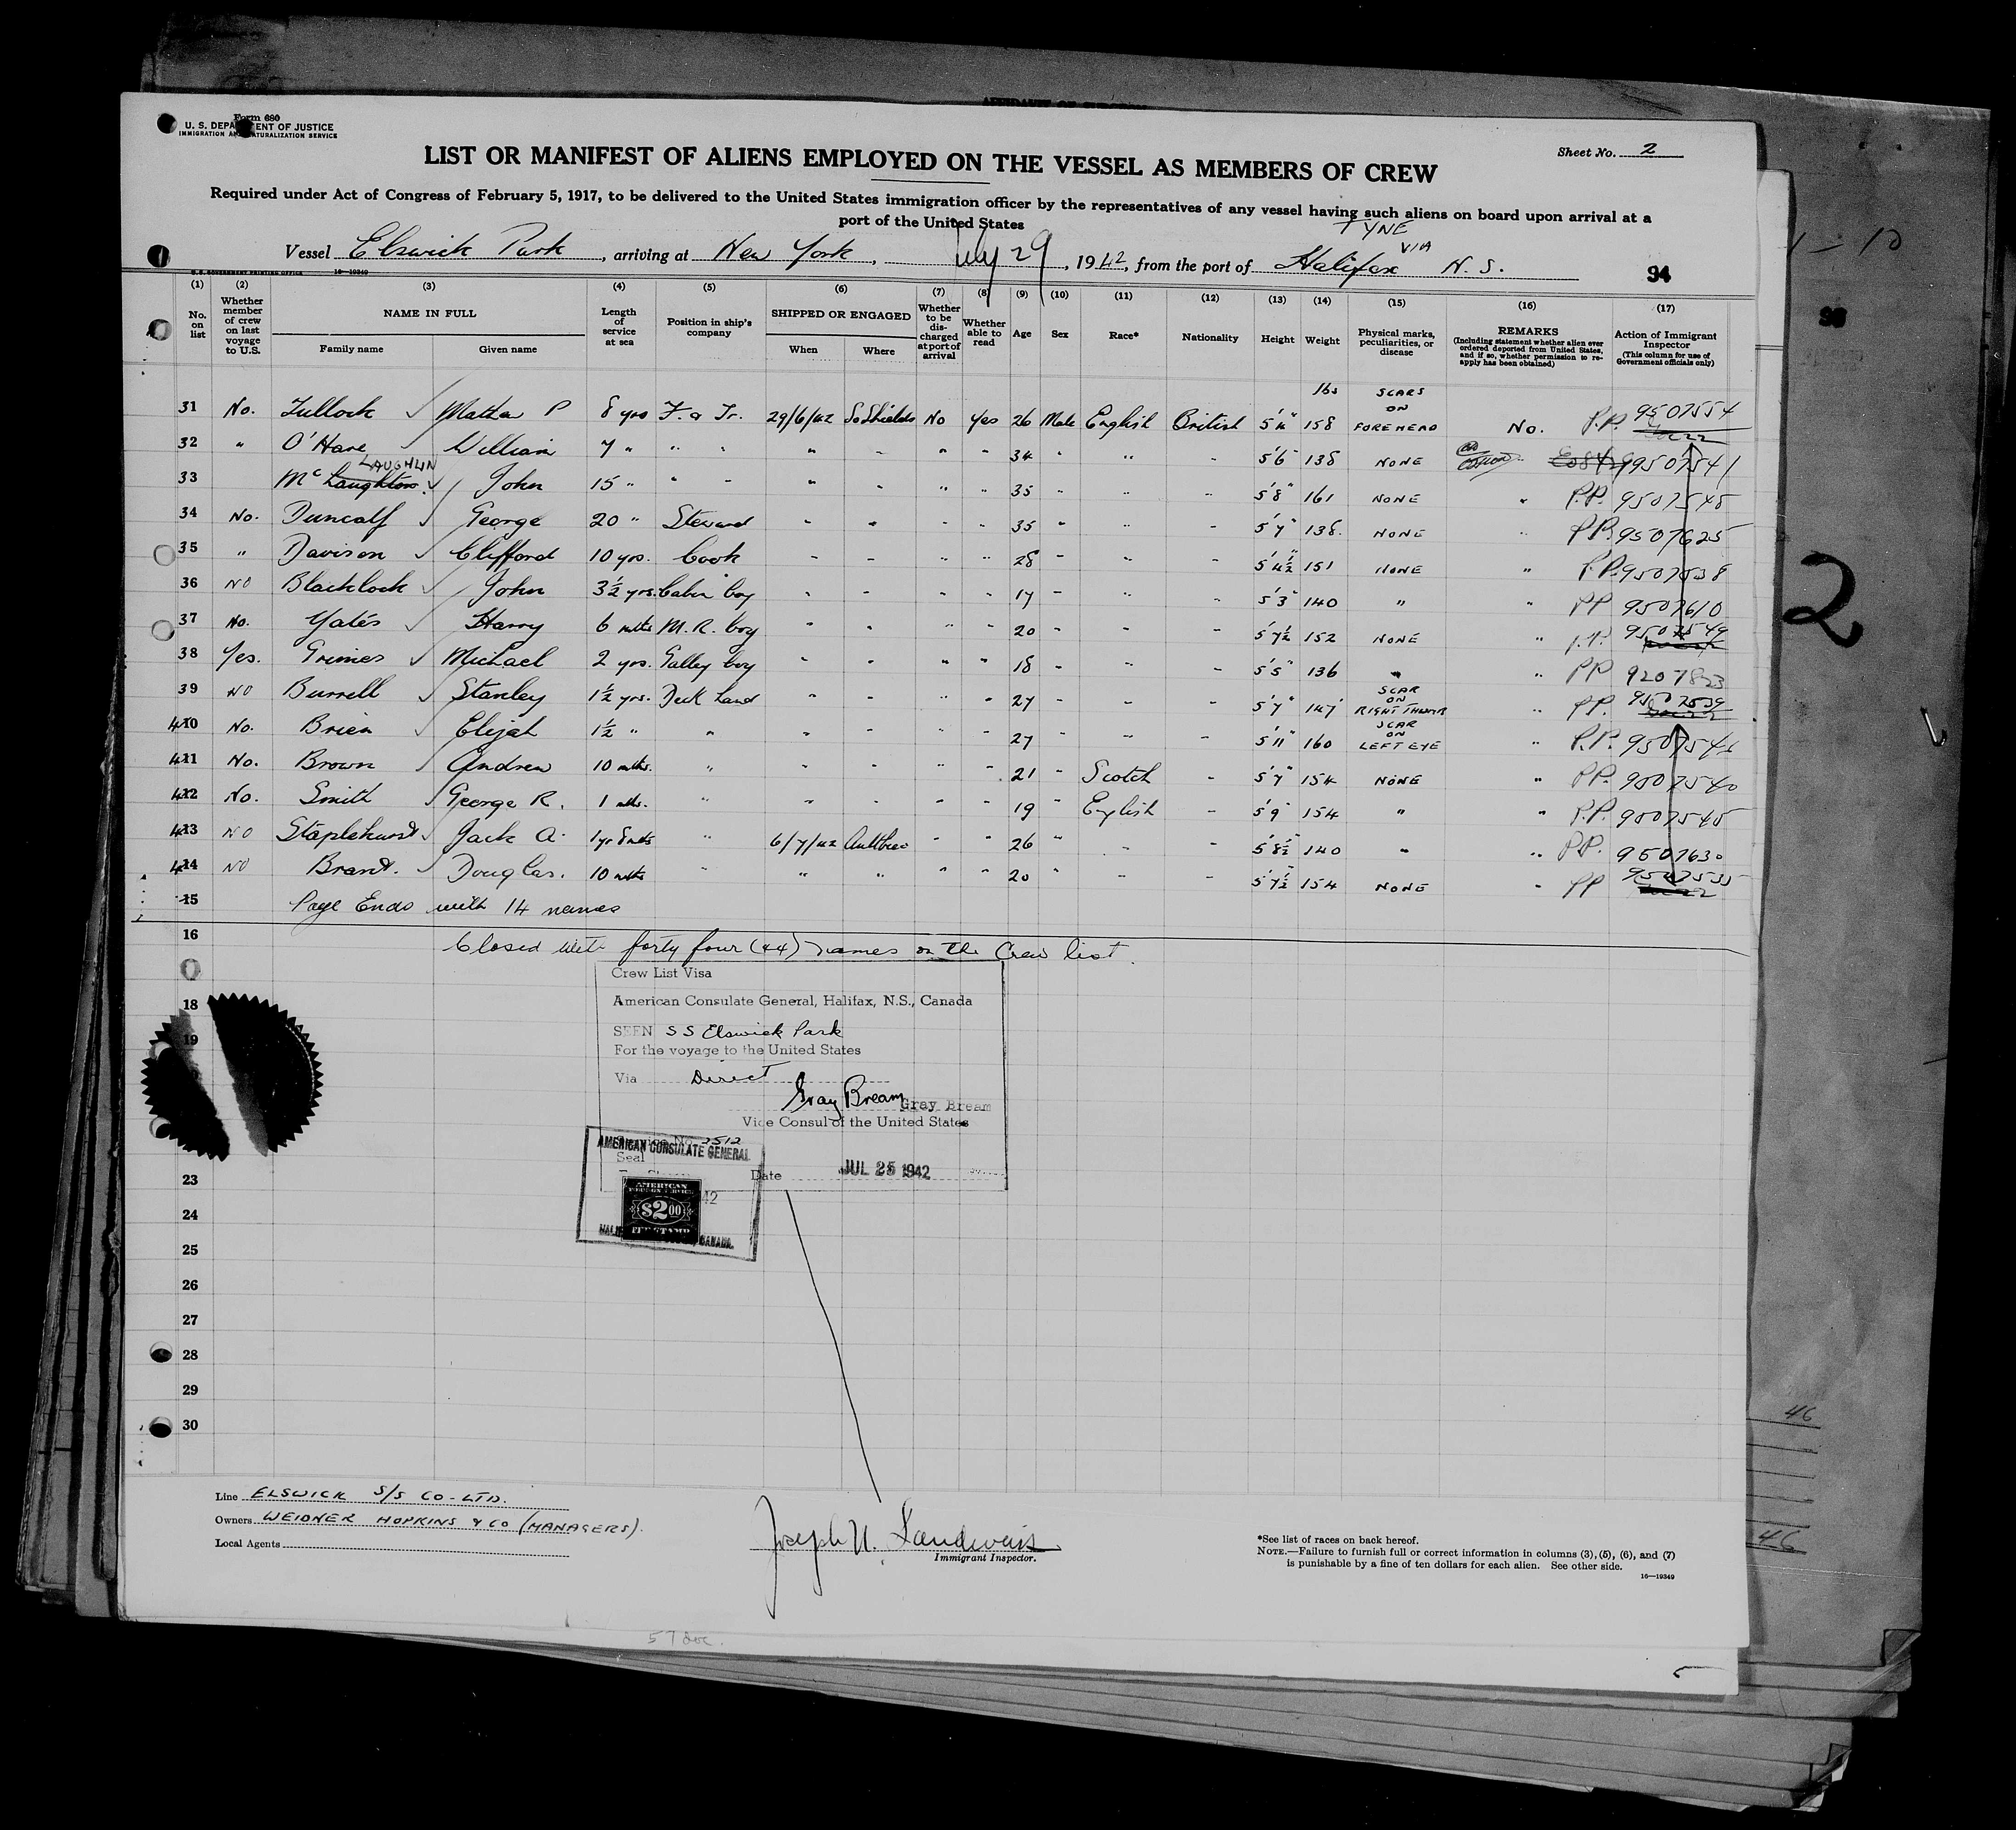 Form 680
U. S. DEPARTMENT OF JUSTICE
IMMIGRATION AND NATURALIZATION SERVICE
Sheet No. 2
LIST OR MANIFEST OF ALIENS EMPLOYED ON THE VESSEL AS MEMBERS OF CREW
Required under Act of Congress of February 5, 1917, to be delivered to the United States immigration officer by the representatives of any vessel having such aliens on board upon arrival at a
port of the United States
TYNE VIA
Vessel Elswick Park, arriving at New York, July 29, 1942, from the port of Halifax N.S. 94
U. S. GOVERNMENT PRINTING OFFICE 16—19349
(1) (2) (3) (4) (5) (6) (7) (8) (9) (10) (11) (12) (13) (14) (15) (16) (17)
No. on list
Whether member of crew on last voyage to U.S.
NAME IN FULL
Family name Given name
Length of service at sea
Position in ship's company
SHIPPED OR ENGAGED
When Where
Whether to be discharged at port of arrival
Whether able to read
Age Sex Race* Nationality Height Weight
Physical marks, peculiarities, or disease
REMARKS
(Including statement whether alien ever ordered deported from United States, and if so, whether permission to reapply has been obtained)
Action of Immigrant Inspector
(This column for use of Government officials only)
lbs
31 No. Tullock Matthew P 8 yrs F. & Tr. 29/6/42 So Shields No Yes 26 Male English British 5'4" 158 SCARS ON FOREHEAD No. P.P. 9507554
32 " O'Hare William 7 " " " " " " " 34 " " 5'6" 138 NONE " 9507541
33 " McLaughton LAUGHLIN John 15 " " " " " " " 35 " " " 5'8" 161 NONE " P.P. 9507548
34 No. Duncalf George 20 " Steward " " " " 35 " " " 5'7" 138 NONE " P.P. 9507625
35 " Davison Clifford 10 yrs. Cook " " " " 28 " " " 5'4½" 151 NONE " P.P. 9507538
36 NO Blacklock John 3½ yrs. Cabin boy " " " " 17 " " " 5'3" 140 " " PP 9507610
37 No. Yates Harry 6 mths M.R. boy " " " " 20 " " " 5'7½ 152 NONE " P.P. 9507549
38 Yes. Grimes Michael 2 yrs. Galley boy " " " " 18 " " " 5'5" 136 " " PP 9207823
39 NO Burrell Stanley 1½ yrs. Deck hand " " " " 27 " " " 5'7" 147 SCAR ON RIGHT THUMB " PP. 9507539
40 No. Brien Elijah 1½ " " " " " " 27 " " " 5'11" 160 SCAR ON LEFT EYE " P.P.
41 No. Brown Andrew 10 mths. " " " " " 21 " Scotch " 5'7" 154 NONE " PP. 9507540
42 No. Smith George R. 1 mths. " " " " " 19 " English " 5'9" 154 " " P.P. 9507545
43 NO Staplehurst Jack A. 1yr 8mths " 6/7/42 " " 26 " " " 5'8½" 140 " " P.P. 9507630
44 NO Brand. Douglas. 10 mths " " " " " 20 " " " 5'7½" 154 NONE " PP 9507535
15 Page Ends with 14 names
16 Closed with forty four (44) names on the Crew list.
Crew List Visa
American Consulate General, Halifax, N.S., Canada
18
SEEN S S Elswick Park
19
For the voyage to the United States
Via Direct
Gray Bream Gray Bream
Vice Consul of the United States
No. 2512
AMERICAN CONSULATE GENERAL
Seal
Date JUL 25 1942
AMERICAN
FOREIGN SERVICE
$2.00
FEE STAMP
CANADA.
23
24
25
26
27
28
29
30
Line ELSWICK S/S CO-LTD.
Owners WEIDNER HOPKINS & CO (MANAGERS).
Local Agents
Joseph N. Landweis
Immigrant Inspector.
*See list of races on back hereof.
NOTE.—Failure to furnish full or correct information in columns (3), (5), (6), and (7)
is punishable by a fine of ten dollars for each alien. See other side.
16—19349
57 doc.
2
46
46